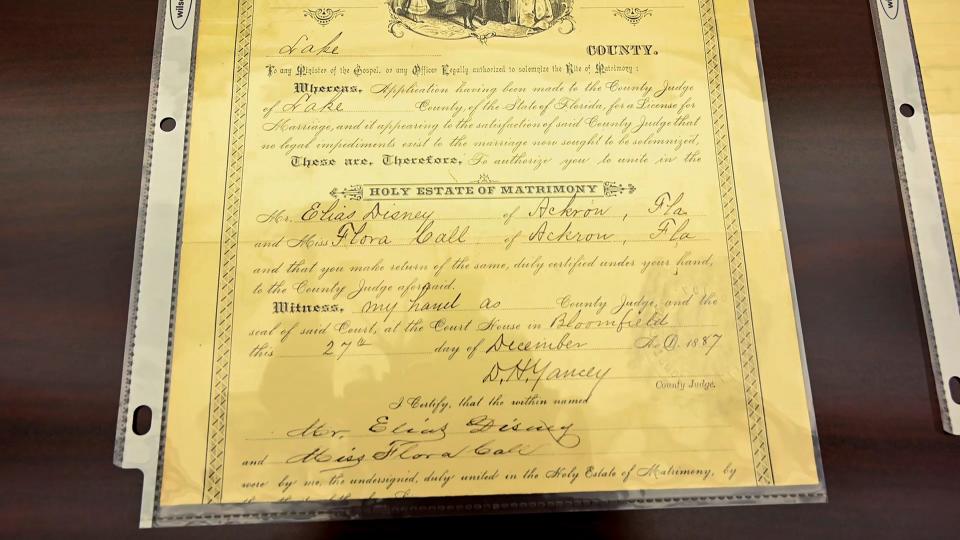 Lake COUNTY.
To any Minister of the Gospel, or any Officer Legally authorized to solemnize the Rite of Matrimony:
Whereas, Application having been made to the County Judge
of Lake County, of the State of Florida, for a License for
Marriage, and it appearing to the satisfaction of said County Judge that
no legal impediments exist to the marriage now sought to be solemnized,
These are, Therefore, To authorize you to unite in the
HOLY ESTATE OF MATRIMONY
Mr. Elias Disney of Ackron, Fla
and Miss Flora Call of Ackron, Fla
and that you make return of the same, duly certified under your hand,
to the County Judge aforesaid.
Witness, my hand as County Judge, and the
seal of said Court, at the Court House in Bloomfield
this 27th day of December A. D. 1887
D. H. Yancey
County Judge.
I Certify, that the within named
Mr. Elias Disney
and Miss Flora Call
were by me, the undersigned, duly united in the Holy Estate of Matrimony, by